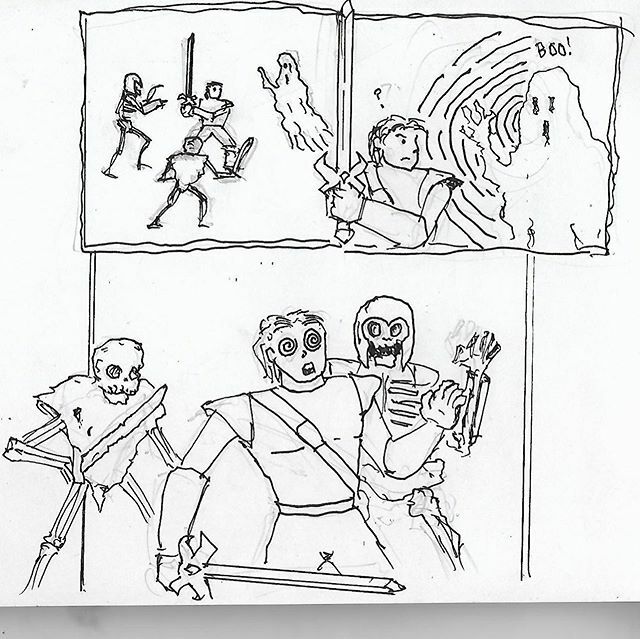 ?
BOO!